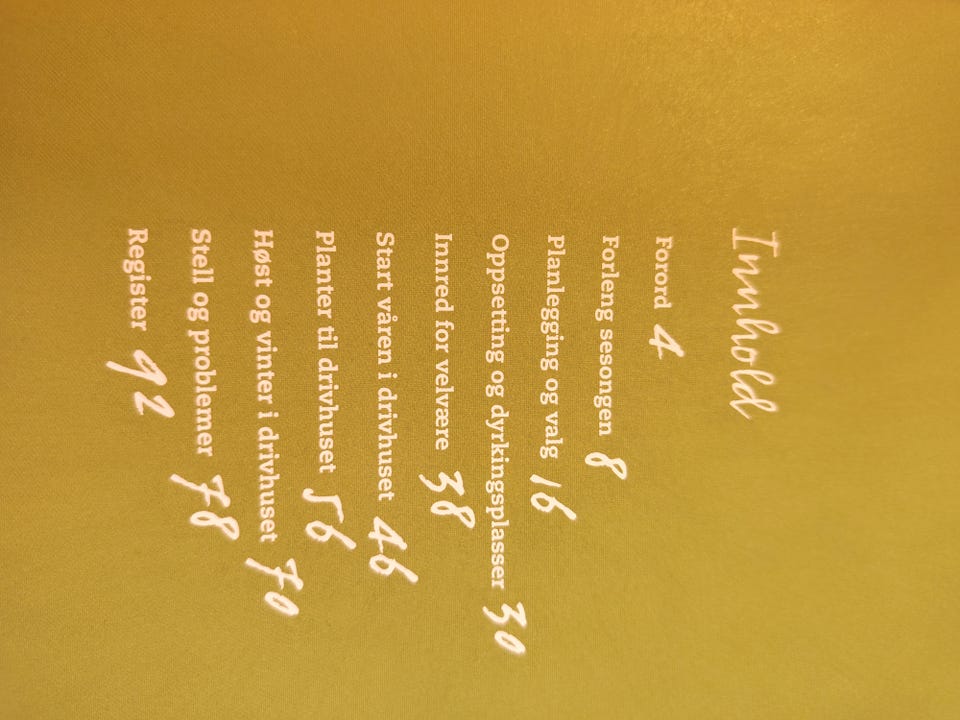 Innhold
Forord 4
Forleng sesongen 8
Planlegging og valg 16
Oppsetting og dyrkingsplasser 30
Innred for velvære 38
Start våren i drivhuset 46
Planter til drivhuset 56
Høst og vinter i drivhuset 70
Stell og problemer 78
Register 92